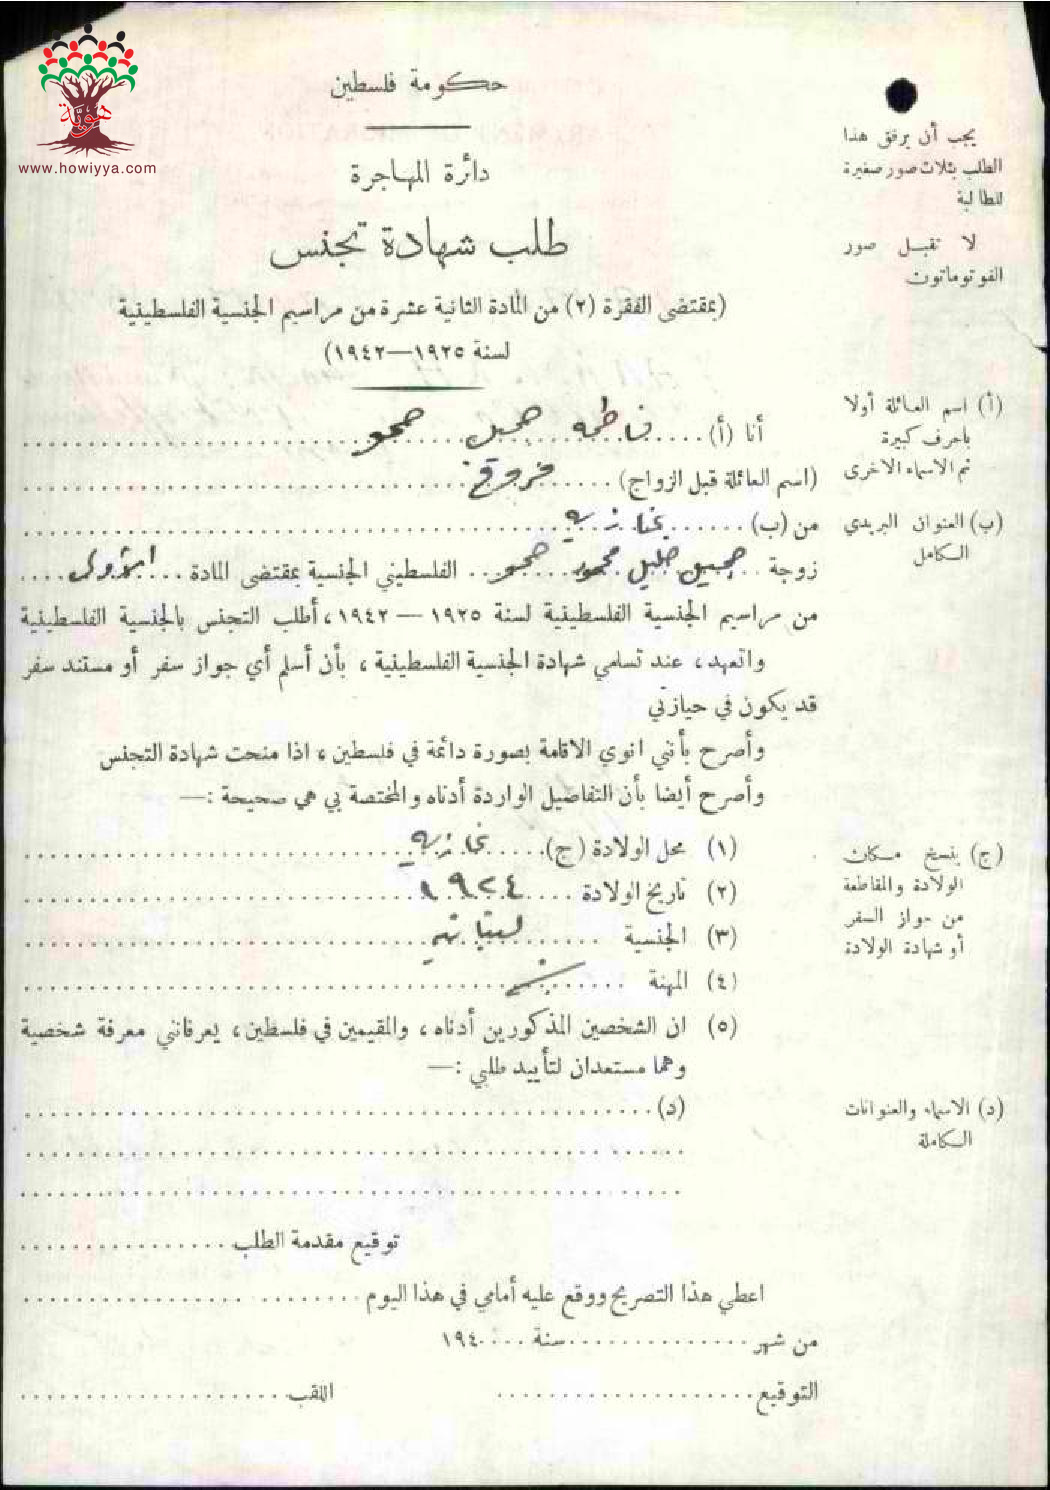 هوية
www.howiyya.com
حكومة فلسطين
دائرة المهاجرة
طلب شهادة تجنس
(بمقتضى الفقرة (٢) من المادة الثانية عشرة من مراسيم الجنسية الفلسطينية
لسنة ١٩٢٥—١٩٤٢)
يجب أن يرفق هذا
الطلب بثلاث صور صغيرة
للطالبة
لا تقبل صور
الفوتوماتون
(أ) اسم العائلة أولا
باحرف كبيرة
ثم الاسماء الاخرى
أنا (أ) .... فاطمه جميل حمو
(اسم العائلة قبل الزواج) ....
(ب) العنوان البريدي
الكامل
من (ب) ....
زوجة .. جميل خليل محمود حمو .. الفلسطيني الجنسية بمقتضى المادة ... الأولى ....
من مراسيم الجنسية الفلسطينية لسنة ١٩٢٥ — ١٩٤٢، أطلب التجنس بالجنسية الفلسطينية
واتعهد، عند تسلمي شهادة الجنسية الفلسطينية، بأن أسلم أي جواز سفر أو مستند سفر
قد يكون في حيازتي
وأصرح بأنني انوي الاقامة بصورة دائمة في فلسطين، اذا منحت شهادة التجنس
وأصرح أيضا بأن التفاصيل الواردة أدناه والمختصة بي هي صحيحة :—
(١) محل الولادة (ج) ....
(٢) تاريخ الولادة .... ١٩٢٤
(٣) الجنسية .... لبنانيه
(٤) المهنة ....
(ج) ينسخ مكان
الولادة والمقاطعة
من جواز السفر
أو شهادة الولادة
(٥) ان الشخصين المذكورين أدناه، والمقيمين في فلسطين، يعرفانني معرفة شخصية
وهما مستعدان لتأييد طلبي :—
(د) ....
(د) الاسماء والعنوانات
الكاملة
توقيع مقدمة الطلب ....
اعطي هذا التصريح ووقع عليه أمامي في هذا اليوم ....
من شهر .... سنة .... ١٩٤
التوقيع .... اللقب ....